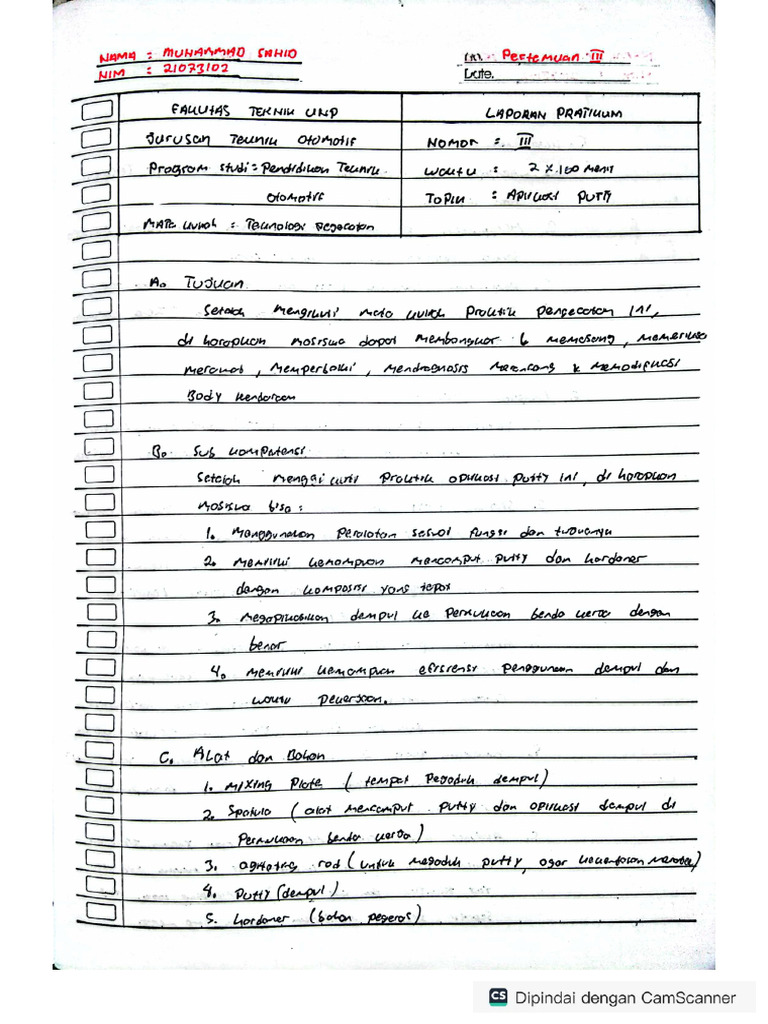 NAMA : MUHAMMAD SAHID
NIM : 21073102
Pertemuan III
Date.
FAKULTAS TEKNIK UNP
LAPORAN PRATIKUM
Jurusan Teknik Otomotif
NOMOR : III
Program studi : Pendidikan Teknik
Otomotif
Waktu : 2 x 100 Menit
TOPIK : APLIKASI PUTTY
MATA kuliah : Teknologi pegecatan
A. Tujuan
Setelah Mengikuti mata kuliah Praktik pengecatan INI,
di harapkan Masiswa dapat Membongkar & Memasang, Memeriksa
Merawat, Memperbaiki, Mendiagnosis Merancang & Memodifikasi
Body kendaraan
B. Sub kompetensi
Setelah mengaikuti Praktik aplikasi putty ini, di harapkan
Masiswa bisa :
1. Menggunakan Peralatan sesuai fungsi dan tujuanya
2. Memiliki kemampuan mencamput putty dan hardaner
dengan komposisi yang tepat
3. Megaplikasikan dempul ke Permukaan benda kerja dengan
benar
4. Memiliki kemampuan efisiensi penggunaan dempul dan
waktu pekerjaan.
C. Alat dan Bahan
1. MIXING Plate ( tempat Pegaduk dempul)
2. Spatula ( alat mencamput putty dan aplikasi dempul di
Permukaan benda kerja)
3. agitating rod ( untuk megaduk putty, agar kekentalan merata)
4. PUTTY (dempul)
5. hardaner (bahan pegeras)
CS Dipindai dengan CamScanner